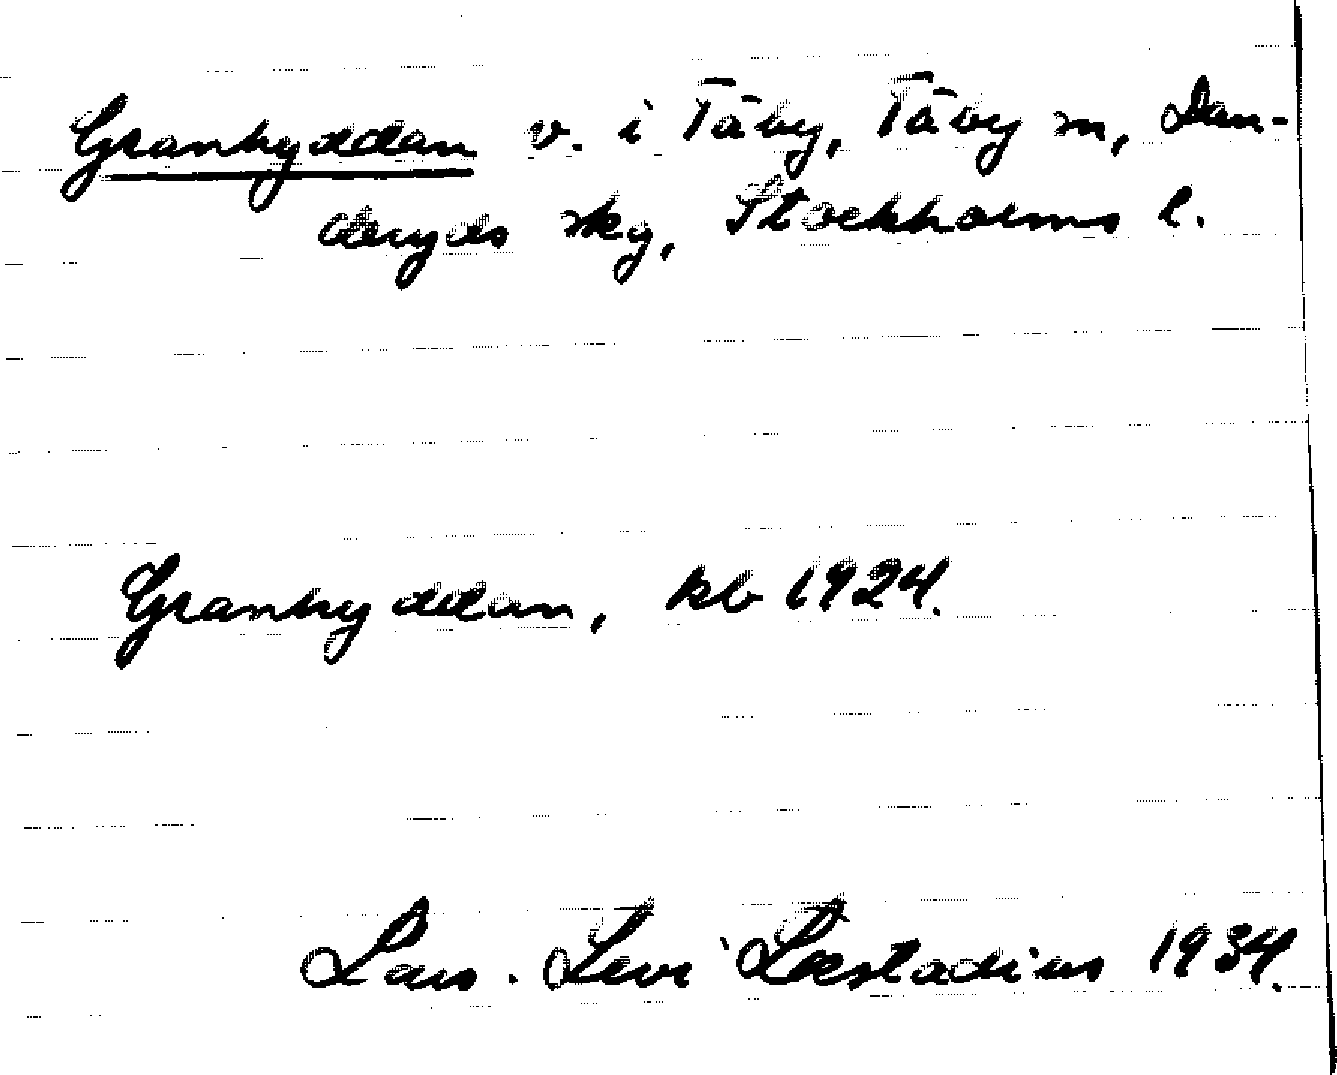 Granhyddan v. i Täby, Täby sn, Dan-
deryds skg, Stockholms l.
Granhyddan, kb 1924.
Lars-Levi Læstadius 1934.